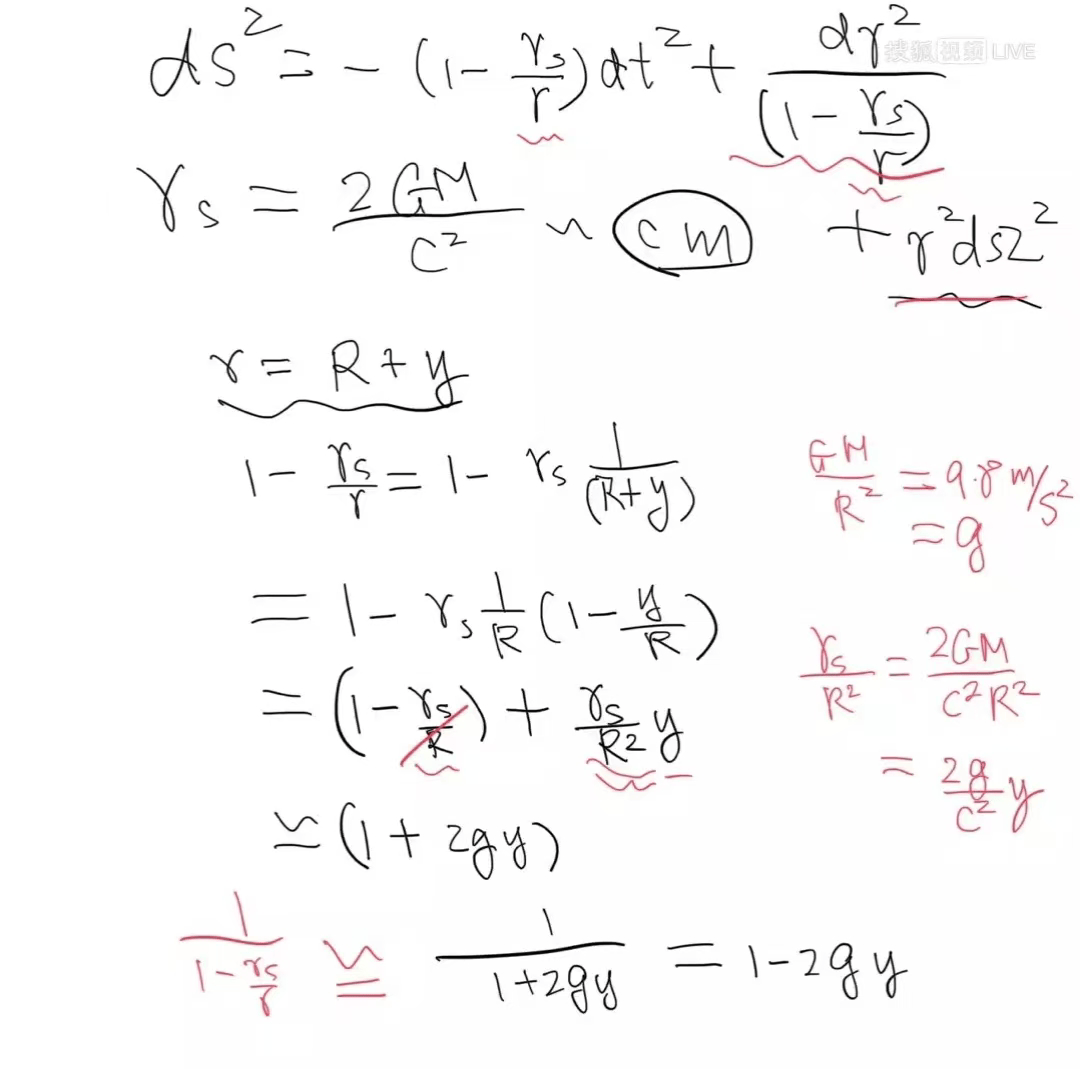 搜狐视频 LIVE
ds² = - (1 - rs/r) dt² + dr²/(1 - rs/r)
+ r²dΩ²
rs = 2GM/c² ~ cm
r = R + y
1 - rs/r = 1 - rs 1/(R+y)
GM/R² = 9.8 m/s²
= g
= 1 - rs 1/R (1 - y/R)
rs/R² = 2GM/c²R²
= (1 - rs/R) + rs/R² y
= 2g/c² y
≃ (1 + 2gy)
1/(1 - rs/r) ≅ 1/(1+2gy) = 1-2gy